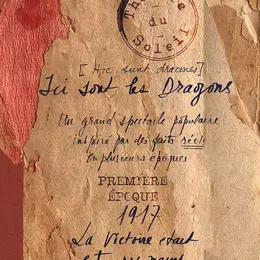 Th e
du
Soleil
[Hic sunt dracones]
Ici sont les Dragons
Un grand spectacle populaire
inspiré par des faits réels
en plusieurs époques
PREMIÈRE
ÉPOQUE
1917
La Victoire était
nos mains